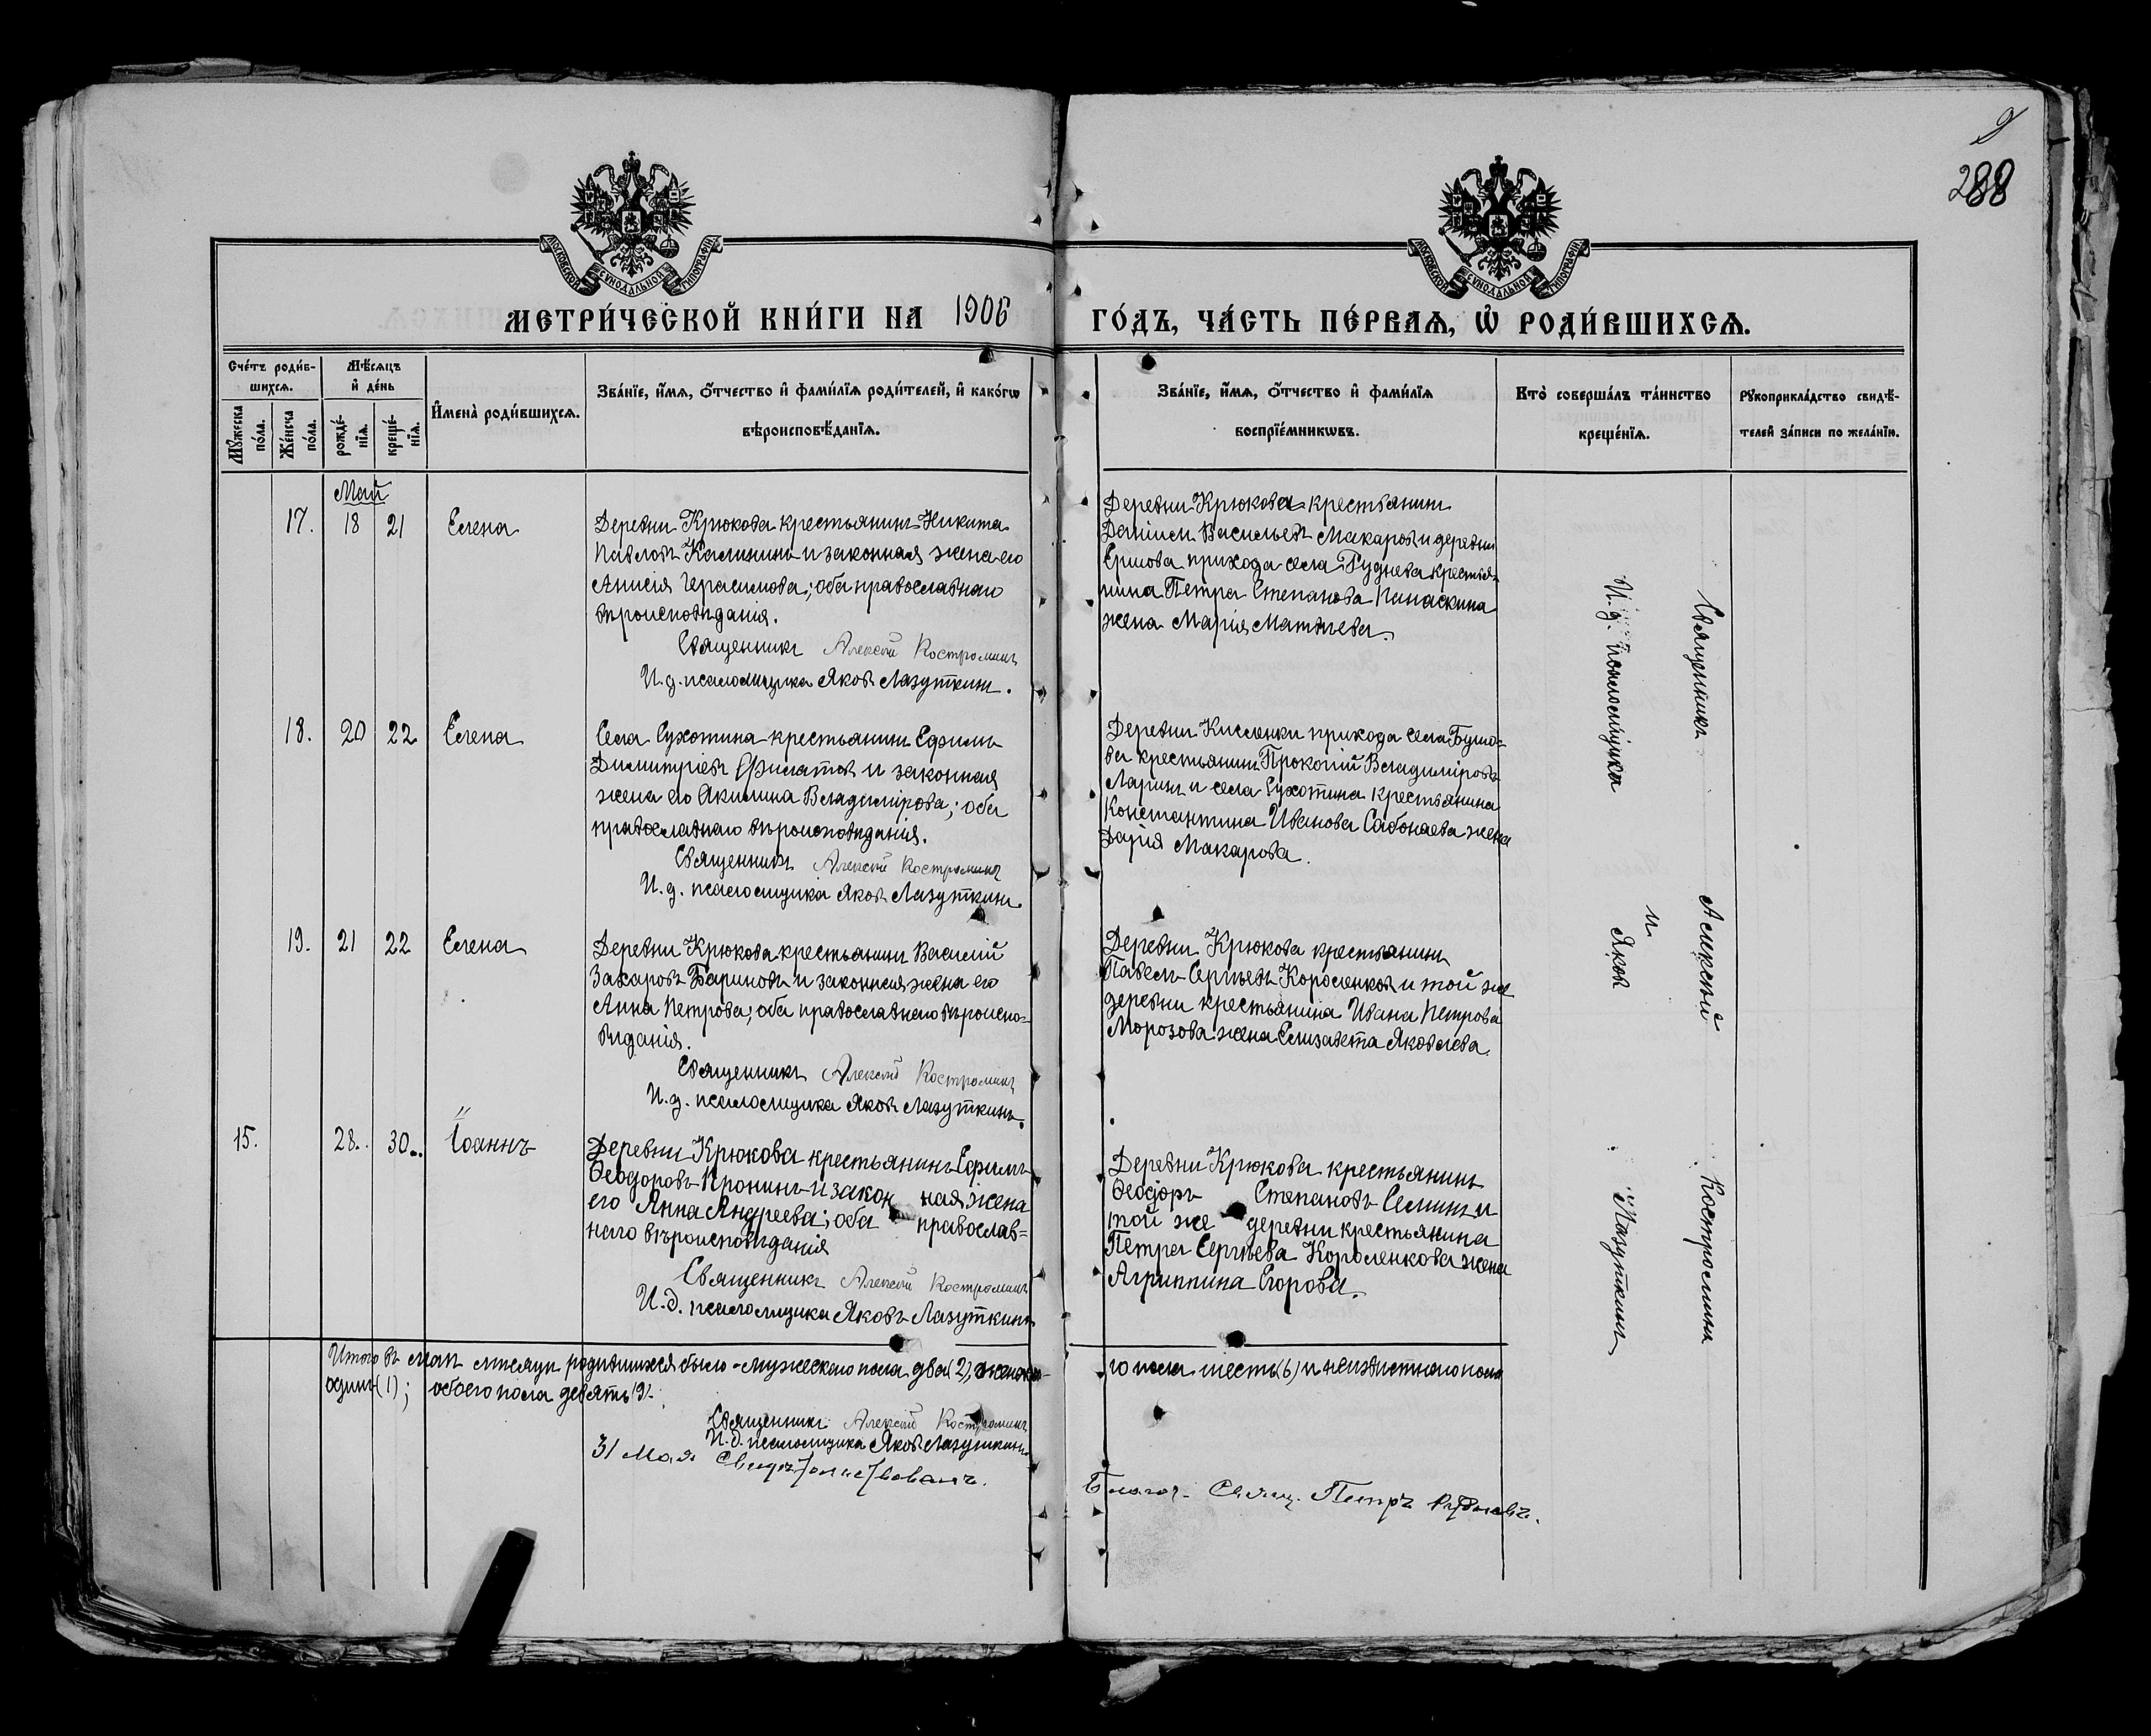 9
288
МОСКОВСКОЙ СѴНОДАЛЬНОЙ ТИПОГРАФІИ
МОСКОВСКОЙ СѴНОДАЛЬНОЙ ТИПОГРАФІИ
МЕТРИ́ЧЕСКОЙ КНИ́ГИ НА 1906 ГО́ДЪ, ЧА́СТЬ ПЕ́РВАЯ, Ѽ РОДИ́ВШИХСЯ.
Сче́тъ роди́в-
шихся.
Мѣ́сяцъ
и҆ де́нь
Мꙋ́жеска по́ла.
Же́нска по́ла.
рожде́-
нїя.
креще́-
нїя.
И҆мена̀ роди́вшихся.
Зва́нїе, и҆́мя, ѻ҆́тчество и҆ фами́лїя роди́телей, и҆ како́гѡ
вѣроисповѣ́данїя.
Зва́нїе, и҆́мя, ѻ҆́тчество и҆ фами́лїя
воспрїе́мникѡвъ.
Кто̀ соверша́лъ та́инство
креще́нїя.
Рꙋкоприкла́дство свидѣ́-
телей за́писи по жела́нїю.
Май
17. 18 21 Елена
Деревни Крюкова крестьянинъ Никита
Павловъ Калининъ и законная жена его
Анисія Герасимова; оба православнаго
вѣроисповѣданія.
Священникъ Алексѣй Костроминъ
И. д. псаломщика Яковъ Лазуткинъ.
Деревни Крюкова крестьянинъ
Даніилъ Васильевъ Макаровъ и деревни
Ершова прихода села Руднева крестья-
нина Петра Степанова жена Марія Матѳѣева.
18. 20 22 Елена
Села Сухотина крестьянинъ Ефимъ
Димитріевъ Филатовъ и законная
жена его Акилина Владимірова; оба
православнаго вѣроисповѣданія.
Священникъ Алексѣй Костроминъ
И. д. псаломщика Яковъ Лазуткинъ.
Деревни Киселенки прихода села
крестьянинъ Прокопій Владиміровъ
Ларинъ и села Сухотина крестьянина
Константина Иванова жена
Дарія Макарова.
19. 21 22 Елена
Деревни Крюкова крестьянинъ Василій
Захаровъ Бариновъ и законная жена его
Анна Петрова; оба православнаго вѣроиспо-
вѣданія.
Священникъ Алексѣй Костроминъ
И. д. псаломщика Яковъ Лазуткинъ.
Деревни Крюкова крестьянинъ
Павелъ Сергѣевъ Короленковъ и той же
деревни крестьянина Ивана Петрова
Морозова жена Елизавета Яковлева.
15. 28. 30. Іоаннъ
Деревни Крюкова крестьянинъ Ефимъ
Ѳеодоровъ Пронинъ и законная жена
его Анна Андреева; оба православ=
наго вѣроисповѣданія
Священникъ Алексѣй Костроминъ
И. д. псаломщика Яковъ Лазуткинъ
Деревни Крюкова крестьянинъ
Ѳеодоръ Степановъ Селинъ и
той же деревни крестьянина
Петра Сергѣева Короленкова жена
Агриппина Егорова.
Священникъ Алексѣй Костроминъ
и
И. д. псаломщика Яковъ Лазуткинъ
Итого въ маѣ мѣсяцѣ родившихся было - мужескаго пола два (2), женска-
го пола шесть (6) и неизвѣстнаго пола
одинъ (1); обоего пола девять (9).
Священникъ Алексѣй Костроминъ
И. д. псаломщика Яковъ Лазуткинъ
31 Мая Свидѣтельствовалъ.
Благоч. Свящ. Петръ Рудневъ.